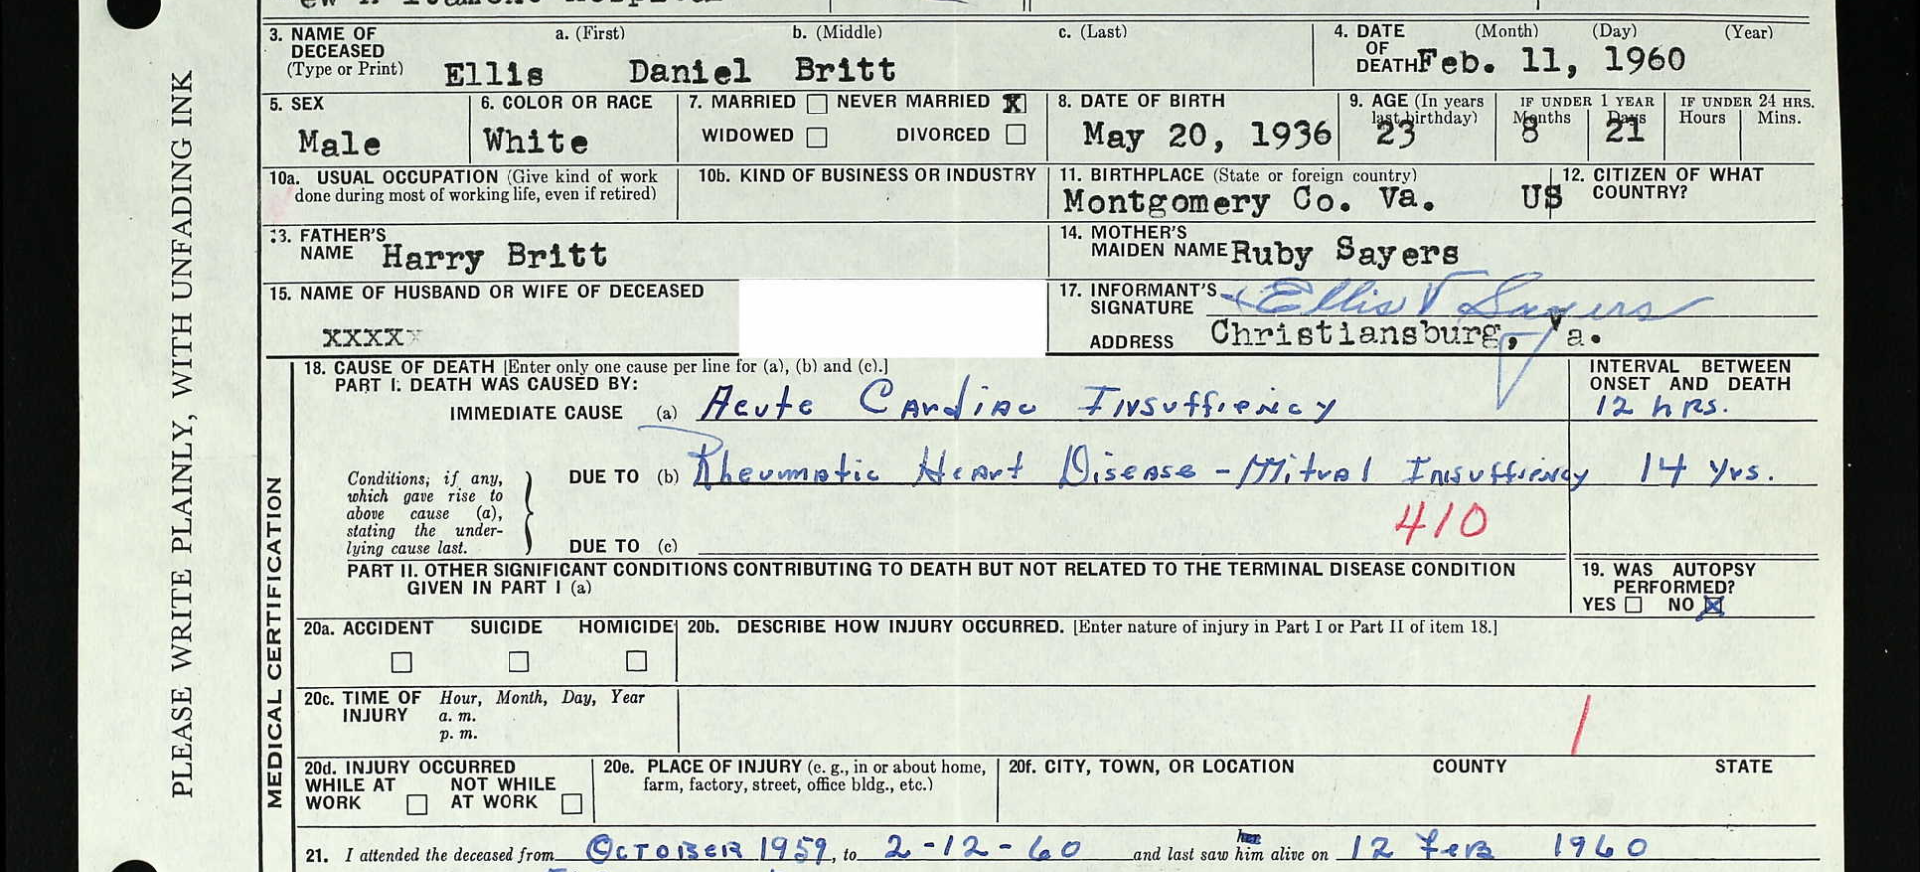 3. NAME OF DECEASED (Type or Print) a. (First) b. (Middle) c. (Last)
Ellis Daniel Britt
4. DATE OF DEATH (Month) (Day) (Year)
Feb. 11, 1960
5. SEX
Male
6. COLOR OR RACE
White
7. MARRIED NEVER MARRIED X
WIDOWED DIVORCED
8. DATE OF BIRTH
May 20, 1936
9. AGE (In years last birthday)
23
IF UNDER 1 YEAR
Months Days
8 21
IF UNDER 24 HRS.
Hours Mins.
10a. USUAL OCCUPATION (Give kind of work
done during most of working life, even if retired)
10b. KIND OF BUSINESS OR INDUSTRY
11. BIRTHPLACE (State or foreign country)
Montgomery Co. Va.
12. CITIZEN OF WHAT COUNTRY?
US
13. FATHER'S NAME Harry Britt
14. MOTHER'S MAIDEN NAME Ruby Sayers
15. NAME OF HUSBAND OR WIFE OF DECEASED
XXXXX
17. INFORMANT'S SIGNATURE Ellis V Sayers
ADDRESS Christiansburg, Va.
PLEASE WRITE PLAINLY, WITH UNFADING INK
MEDICAL CERTIFICATION
18. CAUSE OF DEATH [Enter only one cause per line for (a), (b) and (c).]
PART I. DEATH WAS CAUSED BY:
INTERVAL BETWEEN
ONSET AND DEATH
IMMEDIATE CAUSE (a) Acute Cardiac Insuffiency 12 hrs.
Conditions, if any,
which gave rise to
above cause (a),
stating the under-
lying cause last.
DUE TO (b) Rheumatic Heart Disease - Mitral Insuffiency 14 yrs.
410
DUE TO (c)
PART II. OTHER SIGNIFICANT CONDITIONS CONTRIBUTING TO DEATH BUT NOT RELATED TO THE TERMINAL DISEASE CONDITION
GIVEN IN PART I (a)
19. WAS AUTOPSY
PERFORMED?
YES NO X
20a. ACCIDENT SUICIDE HOMICIDE
20b. DESCRIBE HOW INJURY OCCURRED. [Enter nature of injury in Part I or Part II of item 18.]
20c. TIME OF INJURY Hour, Month, Day, Year
a. m.
p. m.
20d. INJURY OCCURRED
WHILE AT WORK NOT WHILE AT WORK
20e. PLACE OF INJURY (e. g., in or about home,
farm, factory, street, office bldg., etc.)
20f. CITY, TOWN, OR LOCATION COUNTY STATE
21. I attended the deceased from October 1959, to 2-12-60 and last saw her him alive on 12 Feb 1960